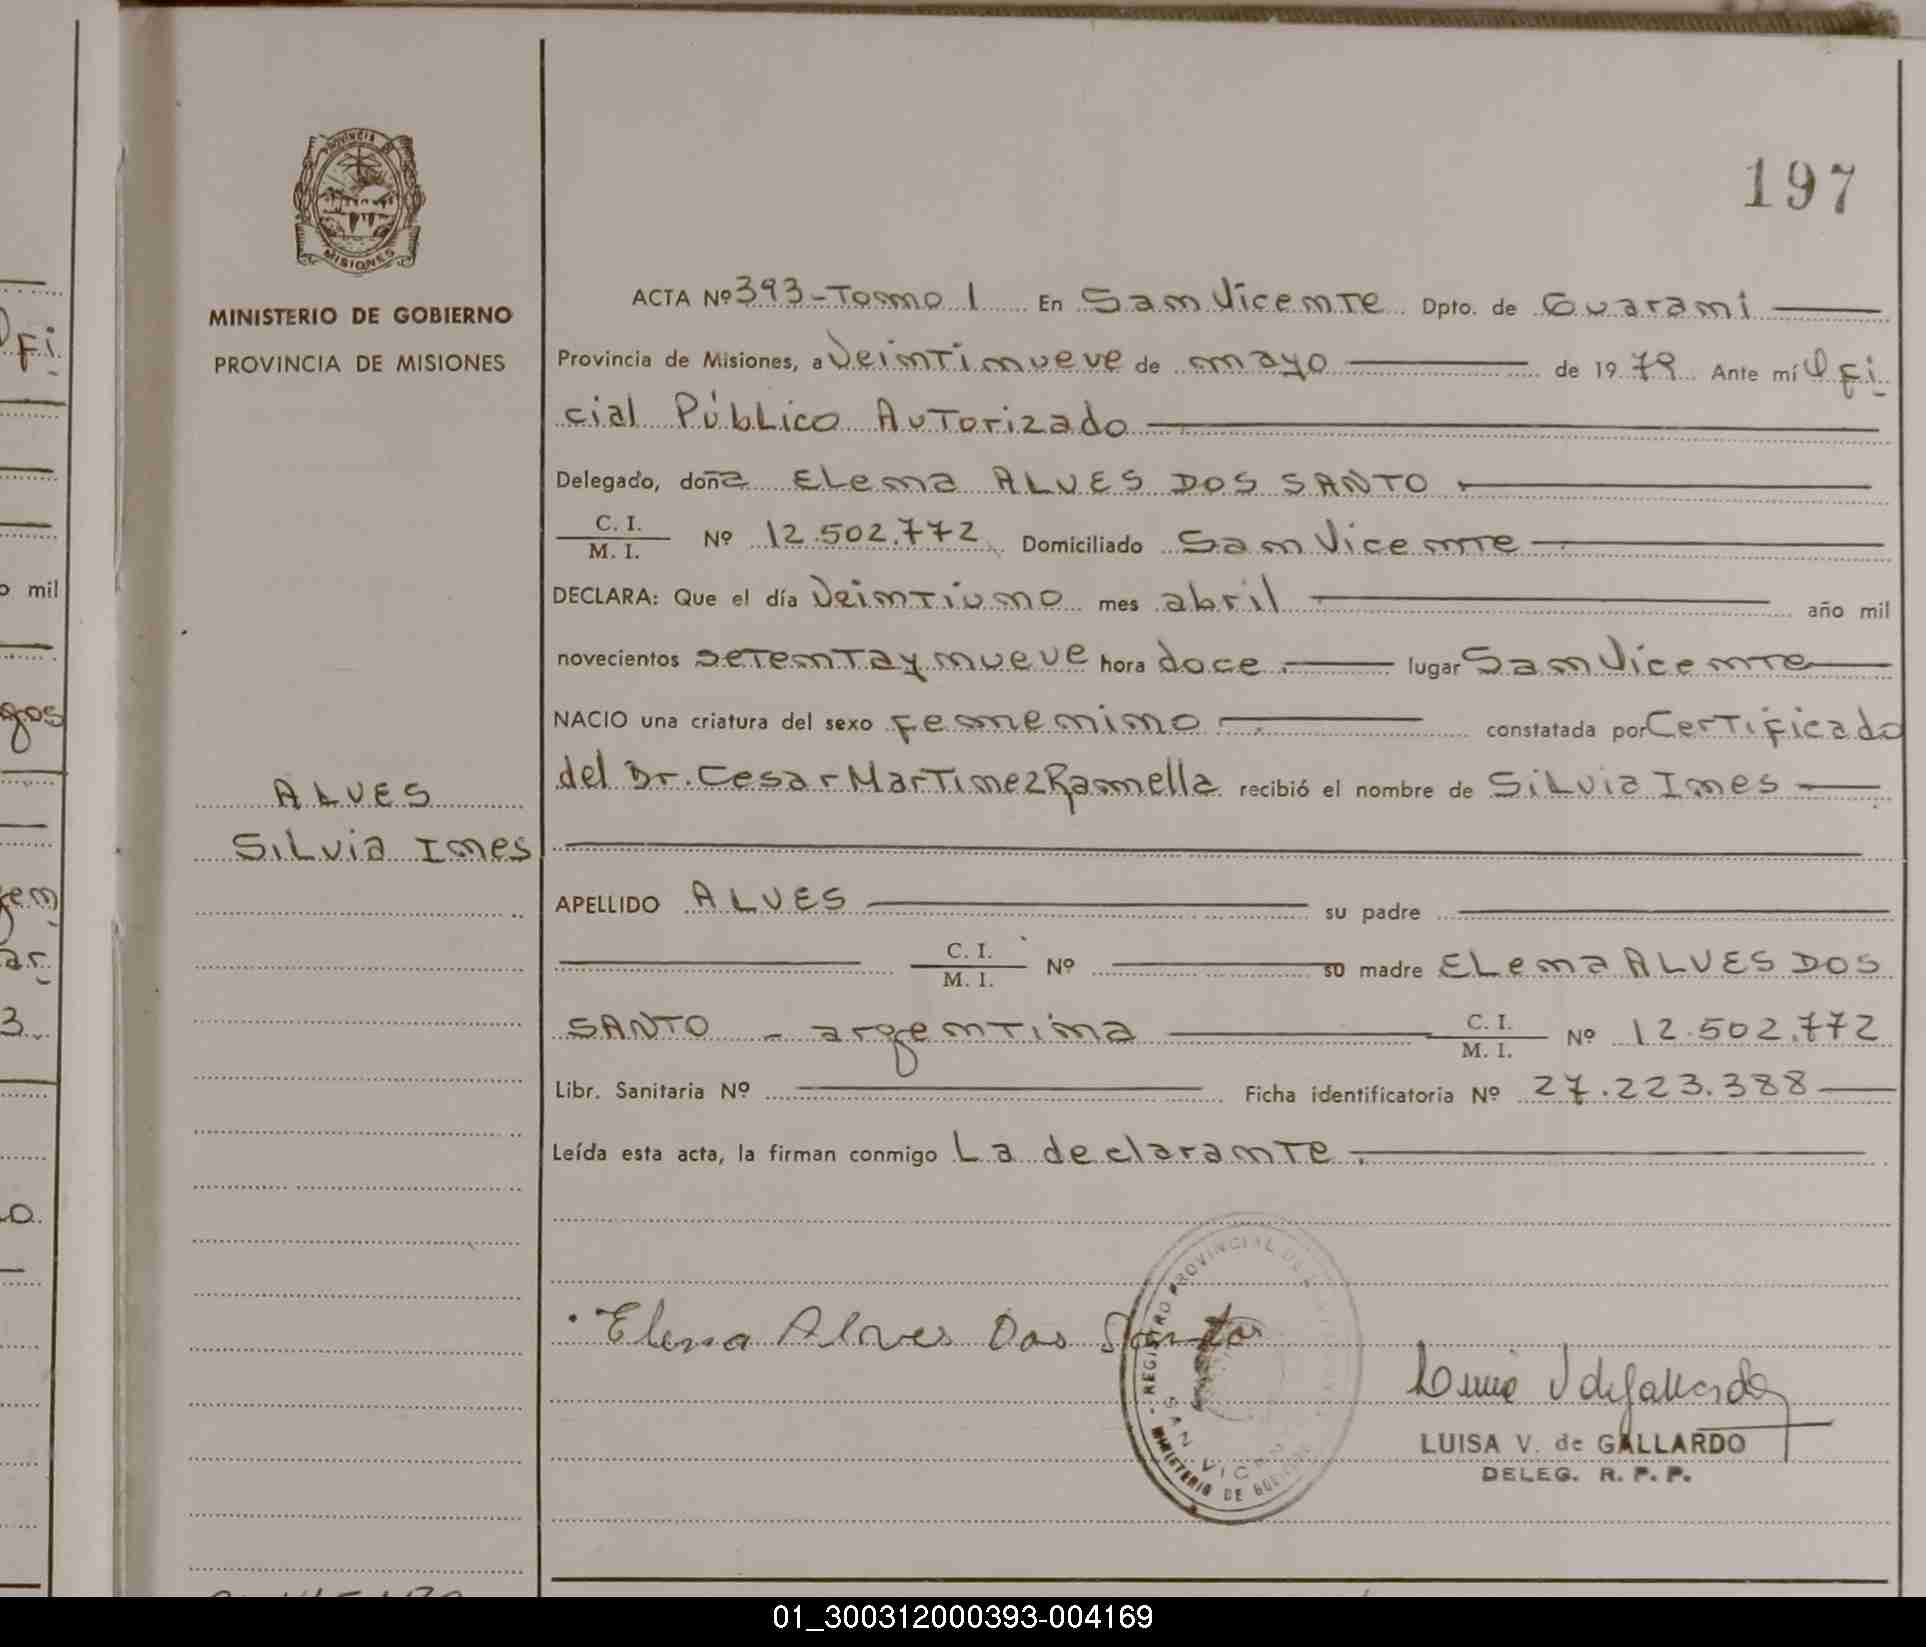 197
PROVINCIA DE
MISIONES
MINISTERIO DE GOBIERNO
PROVINCIA DE MISIONES
ALVES
Silvia Ines
ACTA Nº 393-Tomo I En San Vicente Dpto. de Guarani
Provincia de Misiones, a Veintinueve de mayo de 1979 Ante mí Ofi
cial Público Autorizado
Delegado, doña Elena ALVES DOS SANTO
C. I.
M. I. Nº 12.502.772 Domiciliado San Vicente
DECLARA: Que el día Veintiuno mes abril año mil
novecientos setenta y nueve hora doce lugar San Vicente
NACIO una criatura del sexo femenino constatada por Certificado
del Dr. Cesar Martinez Ramella recibió el nombre de Silvia Ines
APELLIDO ALVES su padre
C. I.
M. I. Nº su madre Elena ALVES DOS
SANTO - argentina C. I.
M. I. Nº 12.502.772
Libr. Sanitaria Nº Ficha identificatoria Nº 27.223.388
Leída esta acta, la firman conmigo La declarante.
Elena Alves Dos Santos
REGISTRO PROVINCIAL DE
SAN VICENTE
MINISTERIO DE GOBIERNO
LUISA V. de GALLARDO
DELEG. R. P. P.
fi
o mil
gos
gen
ar
3
o.
01_300312000393-004169